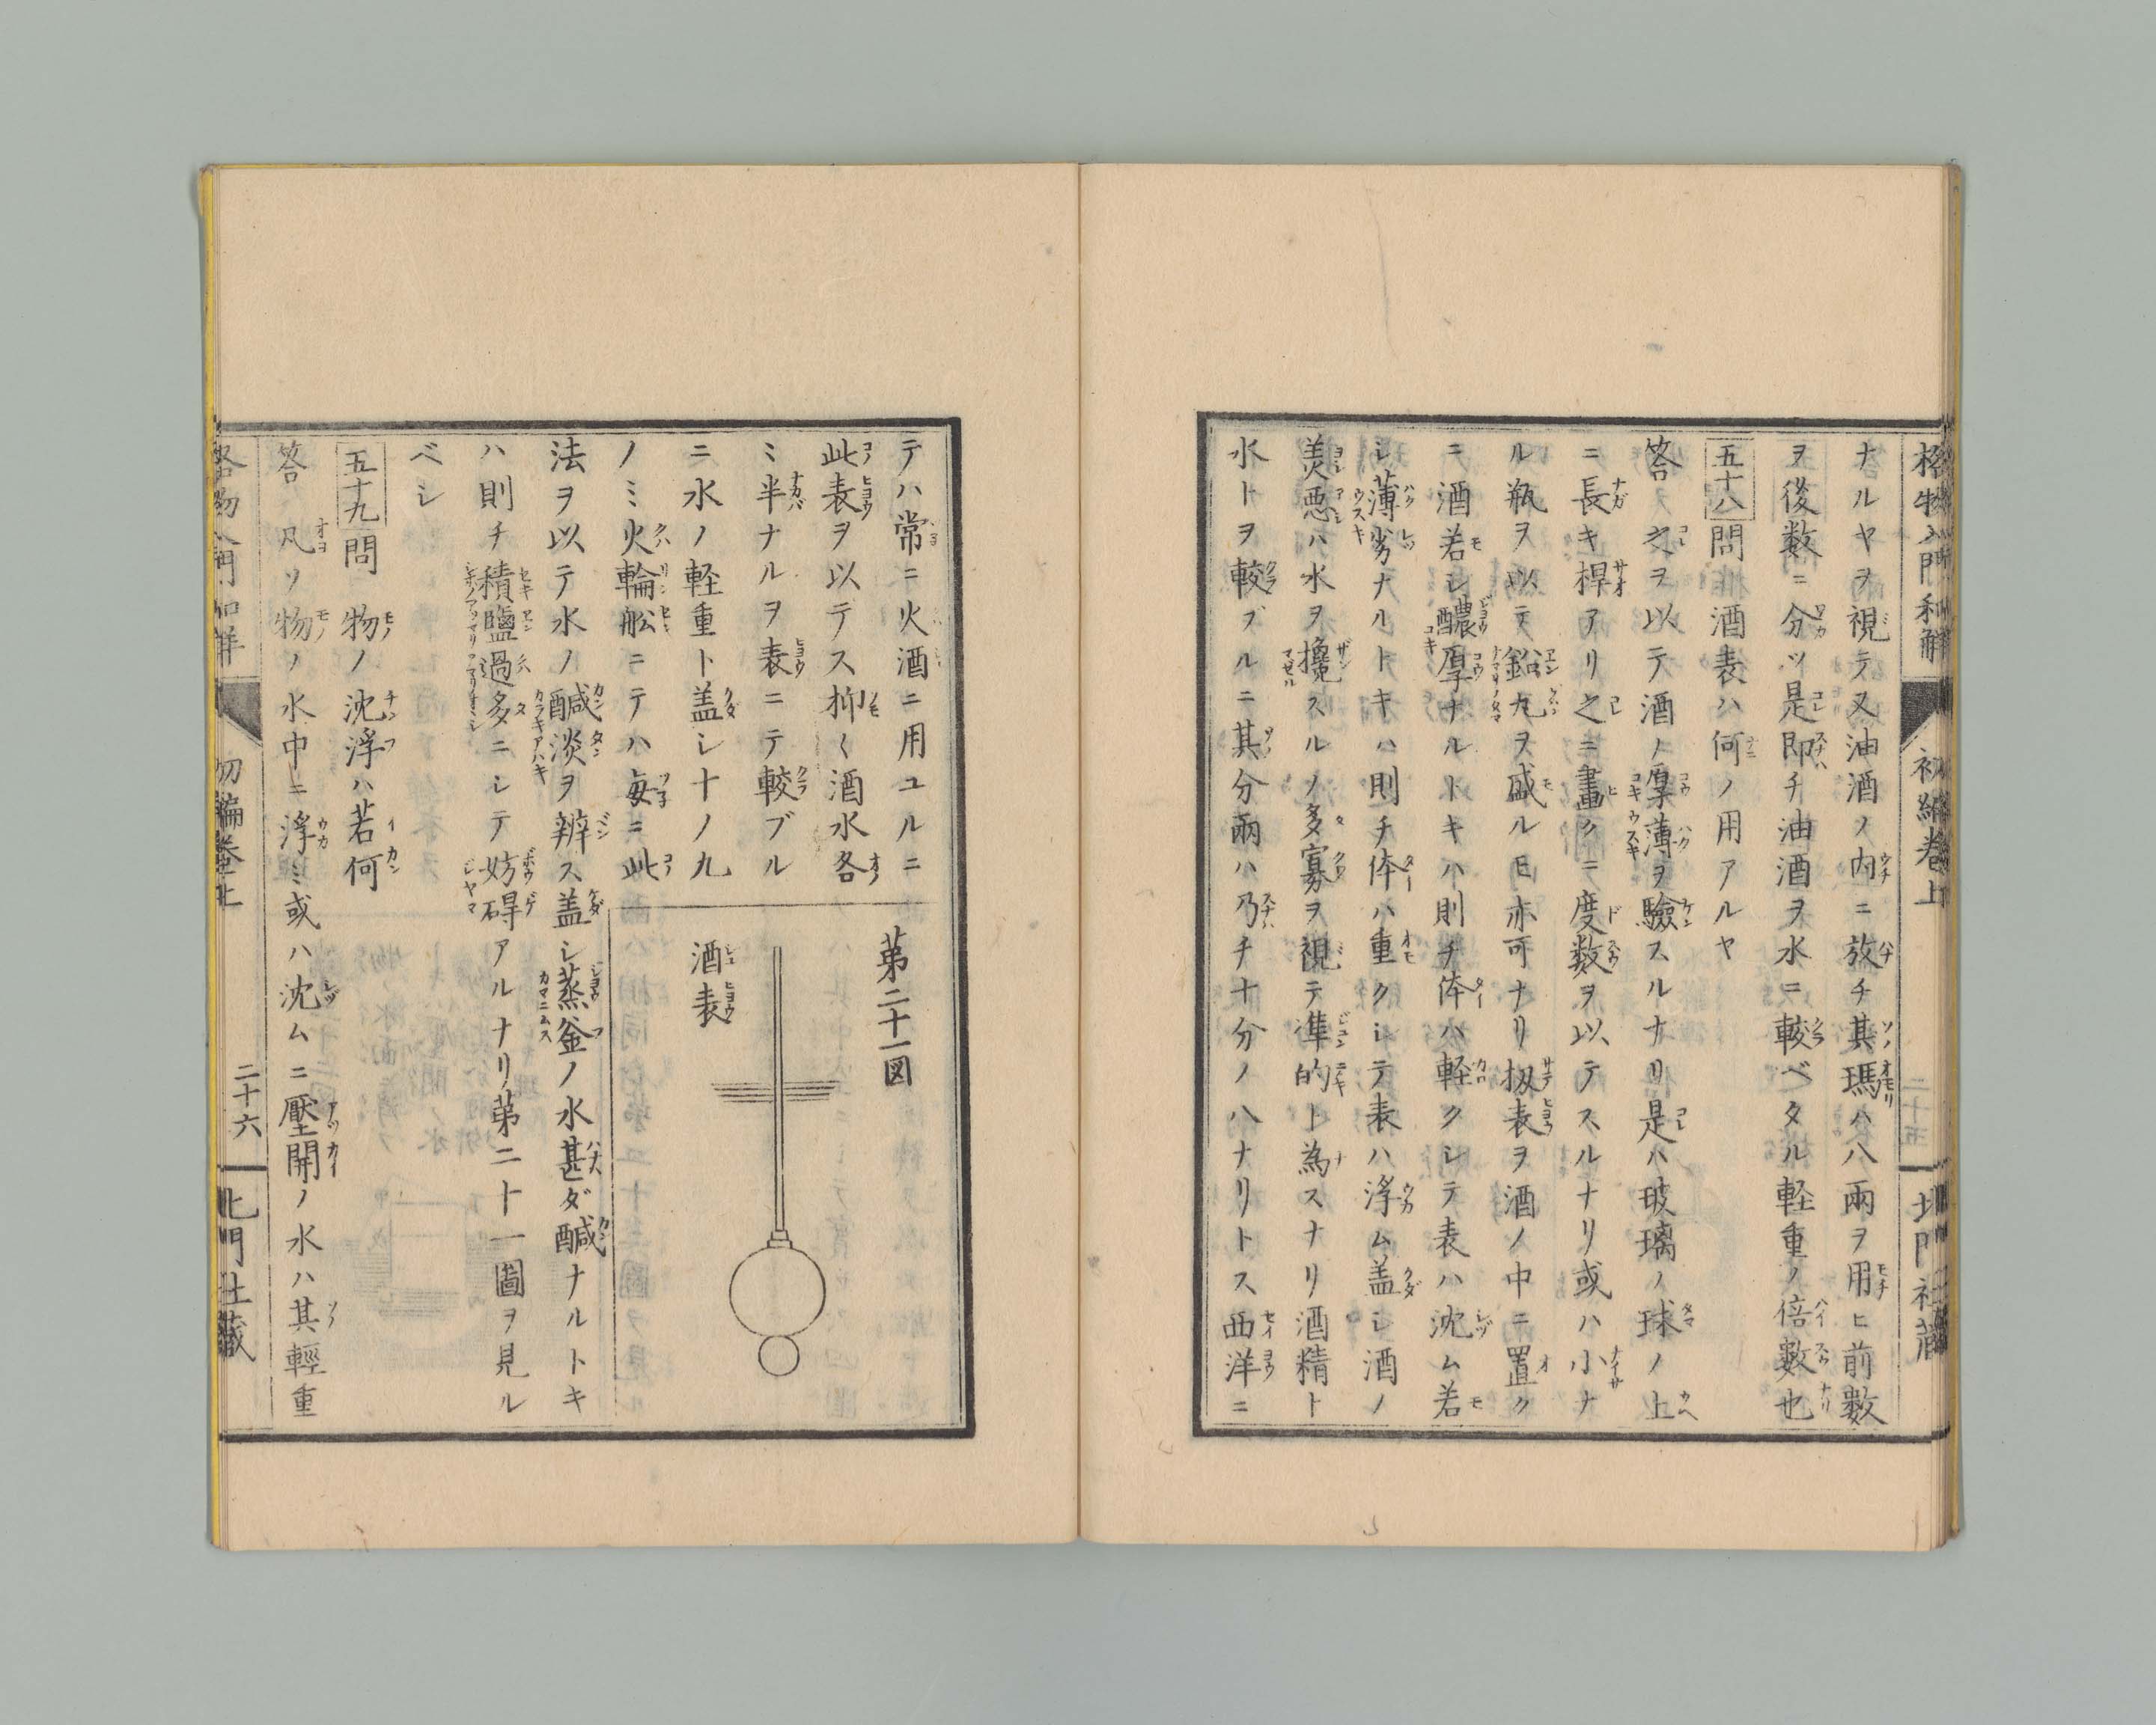 格物入門和解 初編卷上 北門社藏
ナルヤヲ視テ又油酒ノ内ニ放チ其瑪ハ八兩ヲ用ヒ前數
ヲ後数ニ分ツ是即チ油酒ヲ水ニ較ベタル軽重ノ倍數也
五十八問 酒表ハ何ノ用アルヤ
答 之ヲ以テ酒ノ厚薄ヲ驗スルナリ是ハ玻璃ノ球ノ上
ニ長キ桿アリ之ニ畫クニ度数ヲ以テスルナリ或ハ小ナ
ル瓶ヲ以テ鉛丸ヲ盛ルモ亦可ナリ扨表ヲ酒ノ中ニ置ク
ニ酒若シ醲厚ナルトキハ則チ体ハ軽クシテ表ハ沈ム若
シ薄劣ナルトキハ則チ体ハ重クシテ表ハ浮ム盖シ酒ノ
美悪ハ水ヲ攙スルノ多寡ヲ視テ準的ト為スナリ酒精ト
水トヲ較ブルニ其分兩ハ乃チ十分ノ八ナリトス西洋ニ
テハ常ニ火酒ニ用ユルニ
此表ヲ以テス抑〱酒水各
ミ半ナルヲ表ニテ較ブル
ニ水ノ軽重ト盖シ十ノ九
ノミ火輪舩ニテハ毎ニ此
法ヲ以テ水ノ鹹淡ヲ辨ス盖シ蒸釜ノ水甚ダ鹹ナルトキ
ハ則チ積鹽過多ニシテ妨碍アルナリ第二十一圖ヲ見ル
ベシ
第二十一図
酒表
五十九問 物ノ沈浮ハ若何
答 凡ソ物ノ水中ニ浮ミ或ハ沈ムニ壓開ノ水ハ其輕重
格物入門和解 初編卷上 二十六 北門社藏